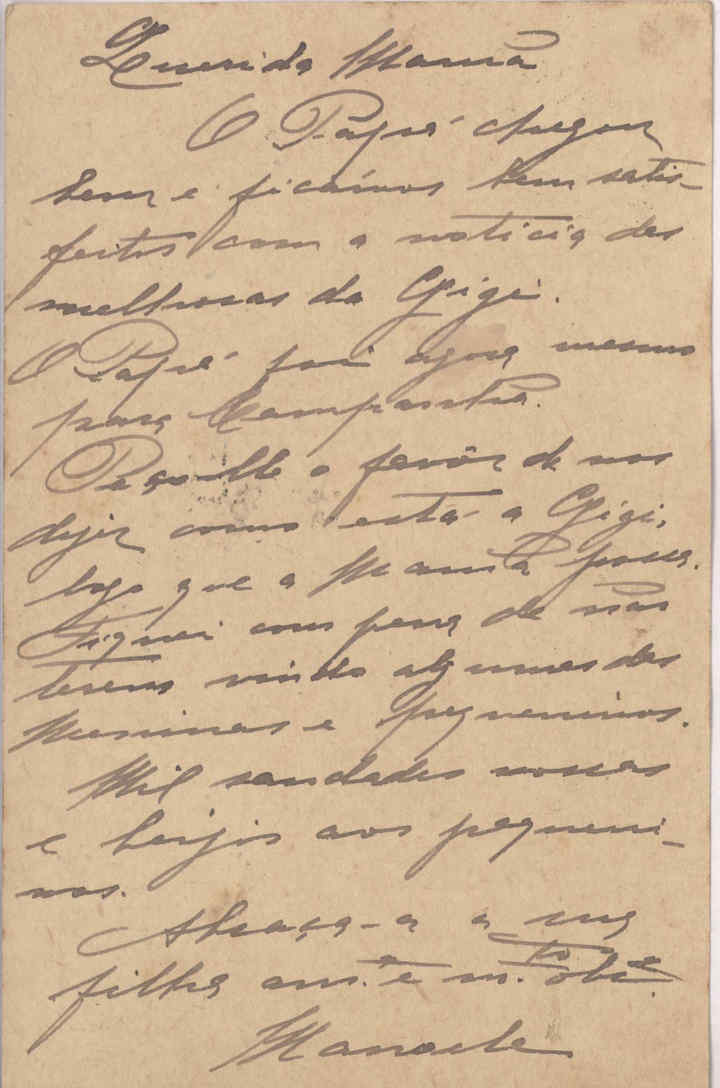 Querida Mamã
O Papá chegou
bem e ficámos bem satis-
feitos com a noticia das
melhoras da Gigi.
O Papá foi agora mesmo
para Campanhã.
Peço-lhe o favôr de nos
dizer como está a Gigi,
logo que a Mamã possa.
Fiquei com pena de não
terem vindo algumas das
meninas e pequeninos.
Mil saudades nossas
e beijos aos pequeni-
nos.
Abraça-a a sua
filha am.ª e m.to obe.